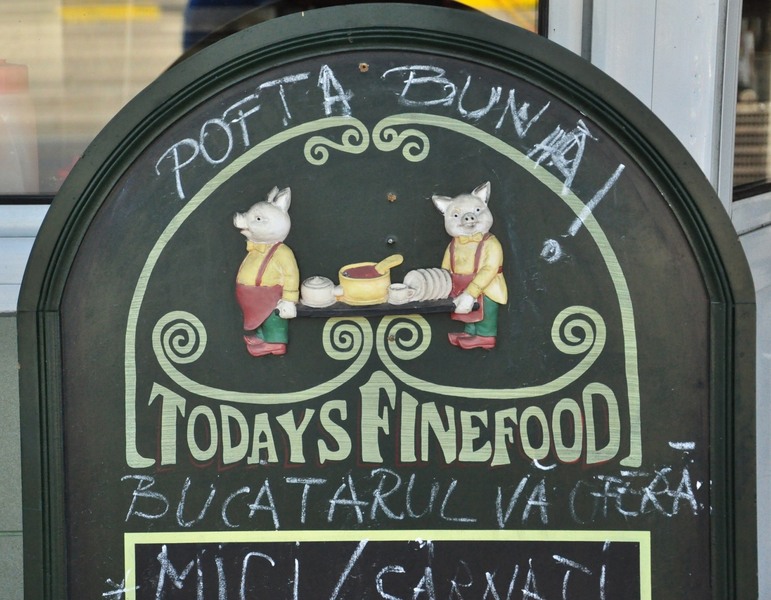 POFTA BUNĂ!
TODAYS FINEFOOD
BUCATARUL VĂ OFERĂ
* MICI / CÂRNAȚI